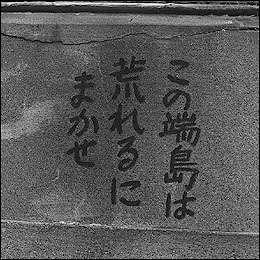 この端島は
荒れるに
まかせ